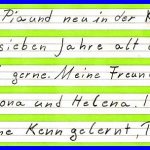 Pia und neu in der K
sieben Jahre alt
gerne. Meine Freun
ona und Helena.
ne Kenn gelernt,